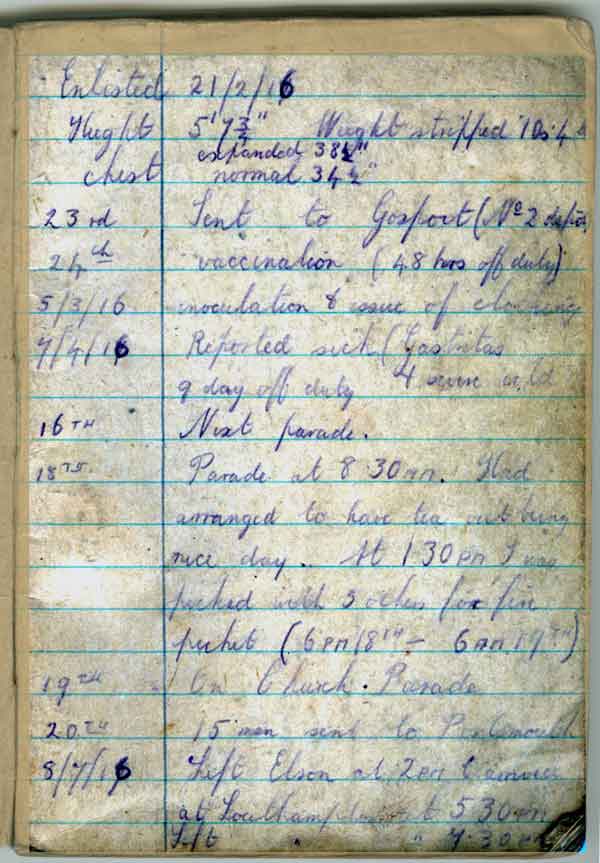 Enlisted 21/2/16
Height 5' 7 3/4" Weight stripped 10s. 4
expanded 38 1/2"
chest normal 34 1/2"
23rd Sent to Gosport (No 2 depôt)
24th vaccination (48 hrs off duty)
5/3/16 inoculation & issue of clothing
7/4/16 Reported sick (Gastritas
9 day off duty
16TH Next parade.
18TH Parade at 8 30 AM. Had
arranged to have tea out being
nice day.. At 1 30 PM I was
picked with 3 others for fire
picket (6 PM 18TH - 6 AM 19TH)
19TH On Church. Parade
20TH 15 men sent to Portsmouth
8/7/16 Left Elson at 2 PM & arrived
at Southampton at 5 30 PM
Left " " 7.30 PM